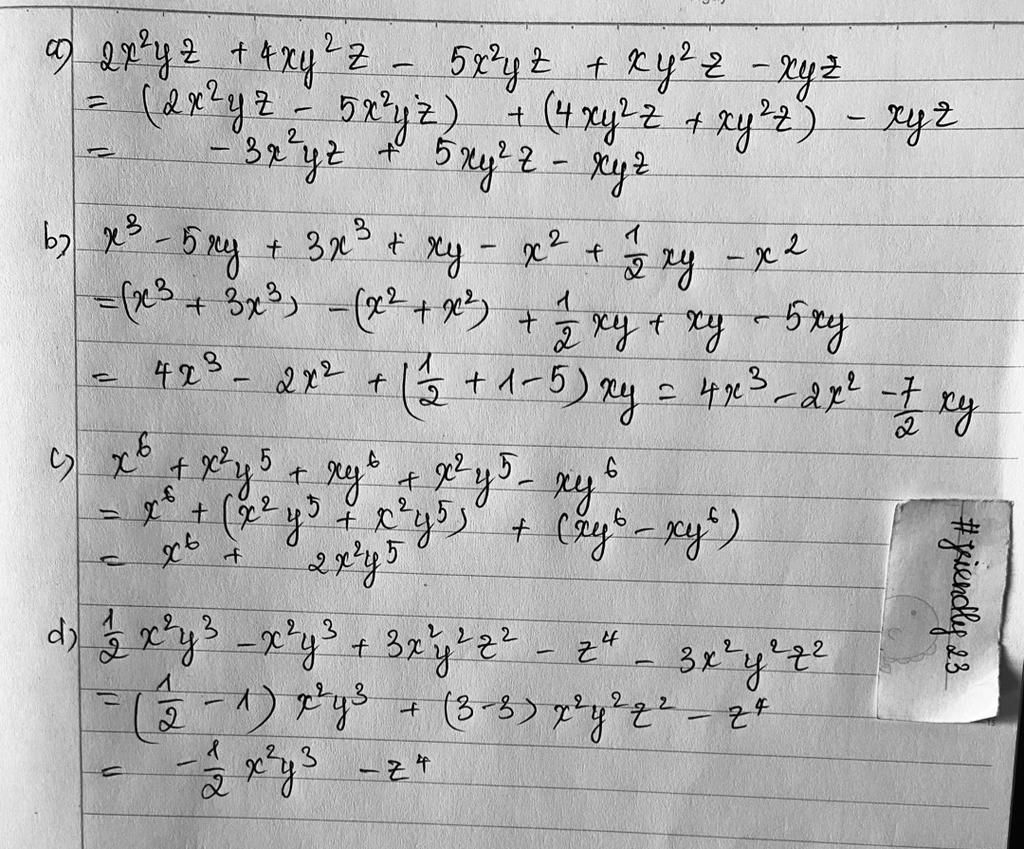 a) 2x²yz + 4xy²z - 5x²yz + xy²z - xyz
= (2x²yz - 5x²yz) + (4xy²z + xy²z) - xyz
= - 3x²yz + 5xy²z - xyz
b) x³ - 5xy + 3x³ + xy - x² + 1/2 xy - x²
= (x³ + 3x³) - (x² + x²) + 1/2 xy + xy - 5xy
= 4x³ - 2x² + (1/2 + 1 - 5) xy = 4x³ - 2x² - 7/2 xy
c) x⁶ + x²y⁵ + xy⁶ + x²y⁵ - xy⁶
= x⁶ + (x²y⁵ + x²y⁵) + (xy⁶ - xy⁶)
= x⁶ + 2x²y⁵
d) 1/2 x²y³ - x²y³ + 3x²y²z² - z⁴ - 3x²y²z²
= (1/2 - 1) x²y³ + (3-3) x²y²z² - z⁴
= - 1/2 x²y³ - z⁴
#friendly23